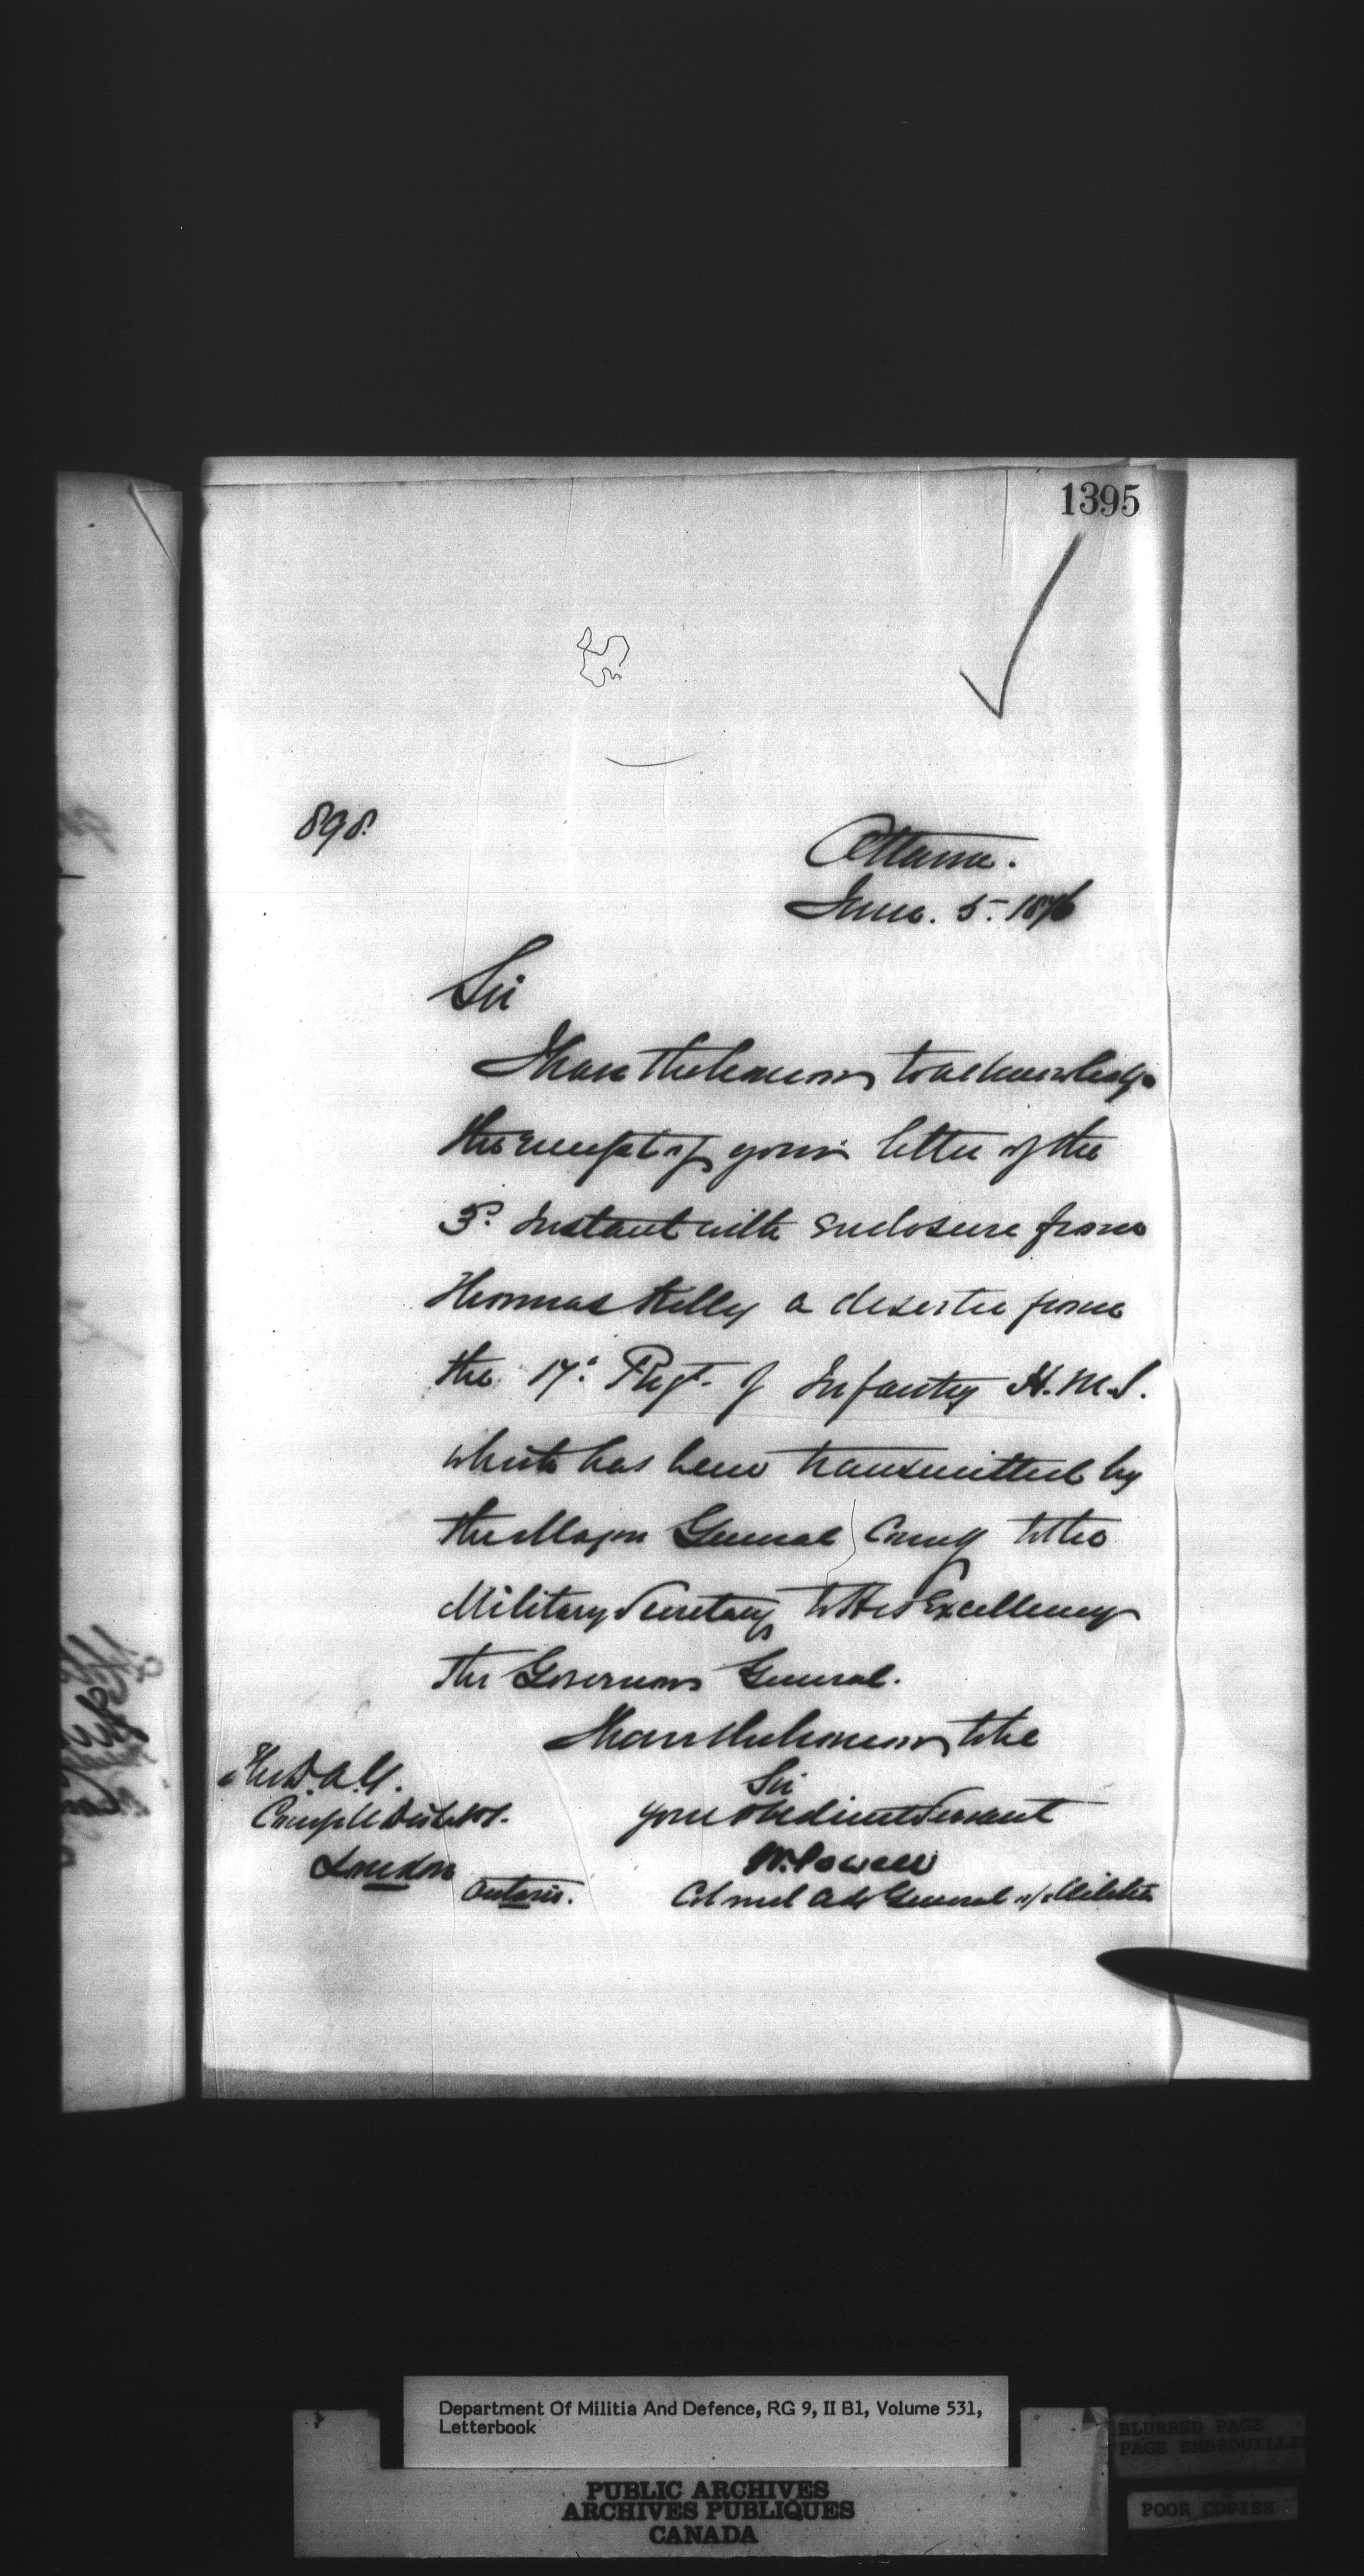 1395
898.
Ottawa.
June. 5. 1876
Sir
I have the honour to acknowledge
the receipt of your letter of the
3d. Instant with enclosure from
Thomas Kelly a deserter from
the 17th. Regt. of Infantry H.M.S.
which has been transmitted by
the Major General Comg to the
Military Secretary to His Excellency
the Governor General.
I have the honour to be
Sir
your obedient Servant
W. Powell
Colonel Adt General of Militia
The D.A.G.
Comg Dist
London
Ontario.
Department Of Militia And Defence, RG 9, II B1, Volume 531,
Letterbook
PUBLIC ARCHIVES
ARCHIVES PUBLIQUES
CANADA
BLURRED PAGE
PAGE EMBROUILLEE
POOR COPIES